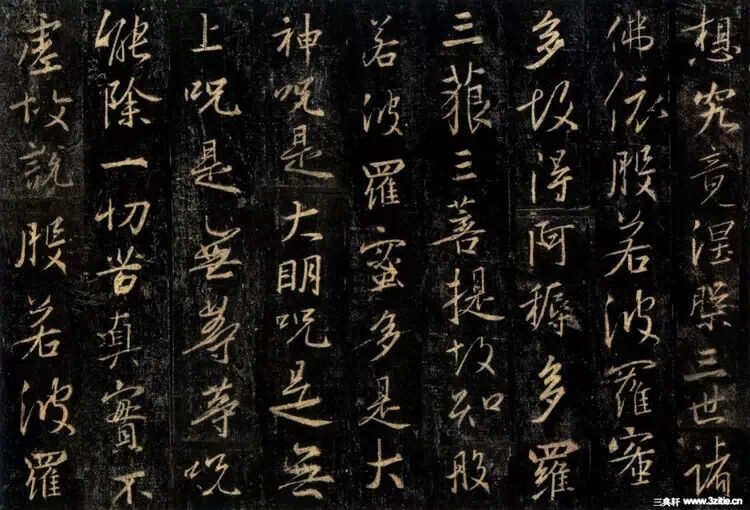 想究竟涅槃三世諸
佛依般若波羅蜜
多故得阿耨多羅
三藐三菩提故知般
若波羅蜜多是大
神咒是大明咒是無
上咒是無等等咒
能除一切苦真實不
虛故說般若波羅
三典轩 www.3zitie.cn